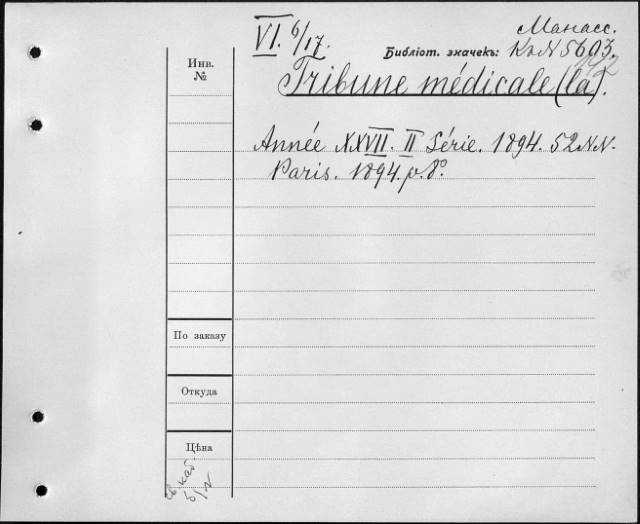 VI. 6/17.
Манасс.
Библіот. значекъ: К. N 5603.
Инв.
№
Tribune médicale (la).
Année XXVII. II Série. 1894. 52 NN.
Paris. 1894. p. 8°.
По заказу
Откуда
Цѣна